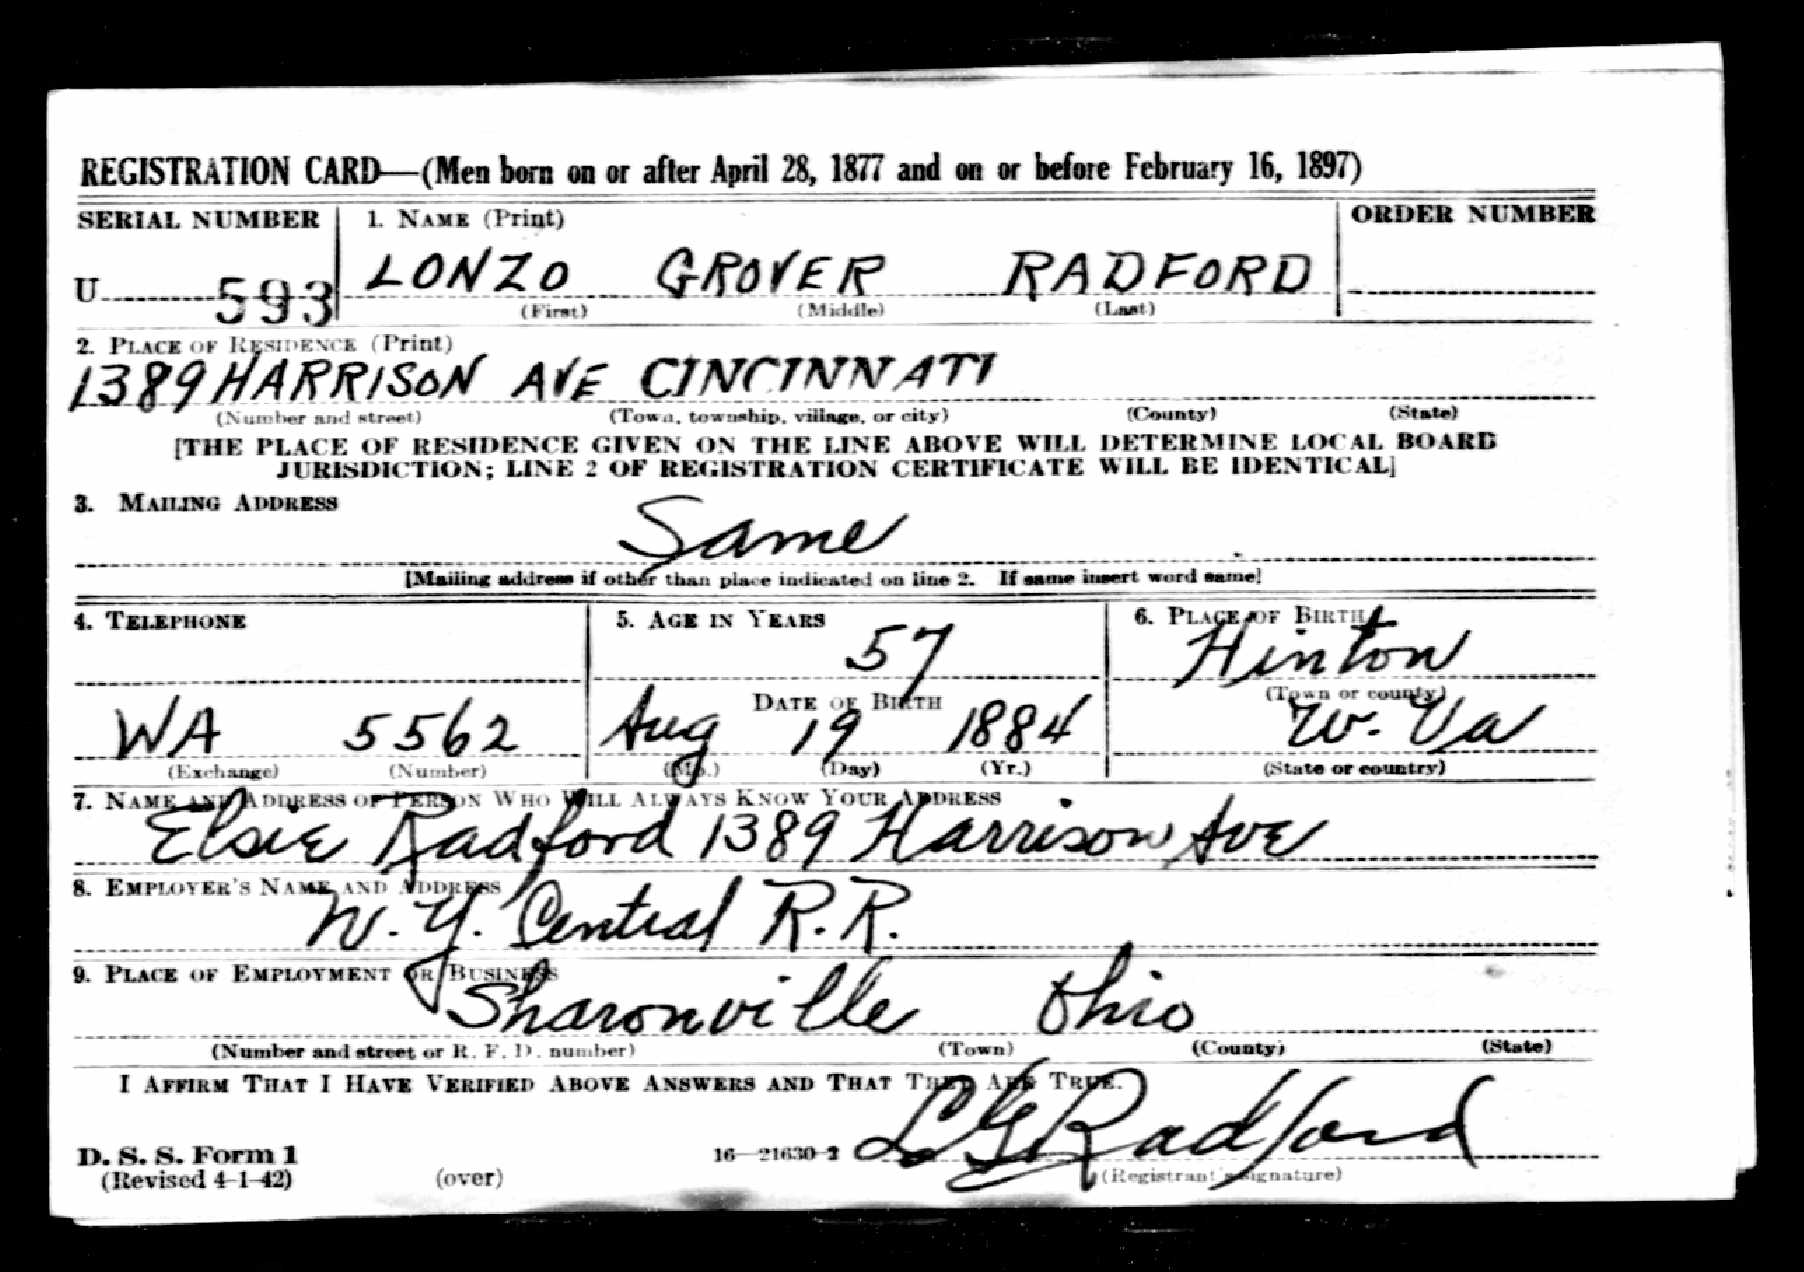 REGISTRATION CARD—(Men born on or after April 28, 1877 and on or before February 16, 1897)
SERIAL NUMBER 1. NAME (Print) ORDER NUMBER
U 593 LONZO GROVER RADFORD
(First) (Middle) (Last)
2. PLACE OF RESIDENCE (Print)
1389 HARRISON AVE CINCINNATI
(Number and street) (Town, township, village, or city) (County) (State)
[THE PLACE OF RESIDENCE GIVEN ON THE LINE ABOVE WILL DETERMINE LOCAL BOARD
JURISDICTION; LINE 2 OF REGISTRATION CERTIFICATE WILL BE IDENTICAL]
3. MAILING ADDRESS
Same
[Mailing address if other than place indicated on line 2. If same insert word same]
4. TELEPHONE 5. AGE IN YEARS 6. PLACE OF BIRTH
57 Hinton
DATE OF BIRTH (Town or county)
WA 5562 Aug 19 1884 W. Va
(Exchange) (Number) (Mo.) (Day) (Yr.) (State or country)
7. NAME AND ADDRESS OF PERSON WHO WILL ALWAYS KNOW YOUR ADDRESS
Elsie Radford 1389 Harrison Ave
8. EMPLOYER'S NAME AND ADDRESS
N. Y. Central R.R.
9. PLACE OF EMPLOYMENT OR BUSINESS
Sharonville Ohio
(Number and street or R. F. D. number) (Town) (County) (State)
I AFFIRM THAT I HAVE VERIFIED ABOVE ANSWERS AND THAT THEY ARE TRUE.
L G Radford
D. S. S. Form 1 16—21630-2
(Revised 4-1-42) (over) (Registrant's signature)